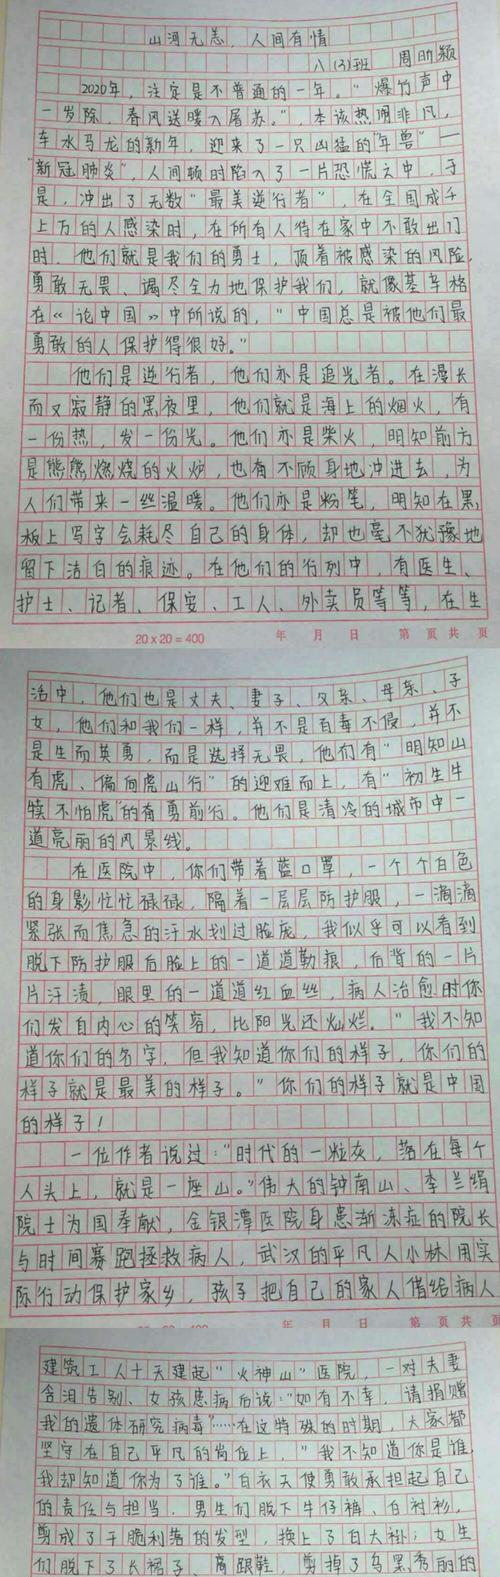 山河无恙，人间有情
八(3)班 周昕颖
2020年，注定是不普通的一年。“爆竹声中
一岁除，春风送暖入屠苏。”，本该热闹非凡，
车水马龙的新年，迎来了一只凶猛的“年兽”——
“新冠肺炎”，人间顿时陷入了一片恐慌之中，于
是，冲出了无数“最美逆行者”，在全国成千
上万的人感染时，在所有人待在家中不敢出门
时，他们就是我们的勇士，顶着被感染的风险，
勇敢无畏、竭尽全力地保护我们，就像基辛格
在《论中国》中所说的，“中国总是被他们最
勇敢的人保护得很好。”
他们是逆行者，他们亦是追光者。在漫长
而又寂静的黑夜里，他们就是海上的烟火，有
一份热，发一份光。他们亦是柴火，明知前方
是熊熊燃烧的火炉，也奋不顾身地冲进去，为
人们带来一丝温暖。他们亦是粉笔，明知在黑
板上写字会耗尽自己的身体，却也毫不犹豫地
留下洁白的痕迹。在他们的行列中，有医生、
护士、记者、保安、工人、外卖员等等，在生
20×20=400 年 月 日 第 页 共 页
活中，他们也是丈夫、妻子、父亲、母亲、子
女，他们和我们一样，并不是百毒不侵，并不
是生而英勇，而是选择无畏，他们有“明知山
有虎、偏向虎山行”的迎难而上，有“初生牛
犊不怕虎”的奋勇前行。他们是清冷的城市中一
道亮丽的风景线。
在医院中，你们带着蓝口罩，一个个白色
的身影忙忙碌碌，隔着一层层防护服，一滴滴
紧张而焦急的汗水划过脸庞，我似乎可以看到
脱下防护服后脸上的一道道勒痕，后背的一片
片汗渍，眼里的一道道红血丝，病人治愈时你
们发自内心的笑容，比阳光还灿烂。“我不知
道你们的名字，但我知道你们的样子，你们的
样子就是最美的样子。”你们的样子就是中国
的样子！
一位作者说过：“时代的一粒灰，落在每个
人头上，就是一座山。”伟大的钟南山、李兰娟
院士为国奉献，金银潭医院身患渐冻症的院长
与时间赛跑拯救病人，武汉的平凡人小林用实
际行动保护家乡，孩子把自己的家人借给病人
年 月 日 第 页 共 页
建筑工人十天建起“火神山”医院，一对夫妻
含泪告别、女孩患病后说：“如有不幸，请捐赠
我的遗体研究病毒”……在这特殊的时期，大家都
坚守在自己平凡的岗位上，“我不知道你是谁，
我却知道你为了谁。”白衣天使勇敢承担起自己
的责任与担当，男生们脱下牛仔裤、白衬衫，
剪成了干脆利落的发型，换上了白大褂；女生
们脱下了长裙子、高跟鞋，剪掉了乌黑秀丽的